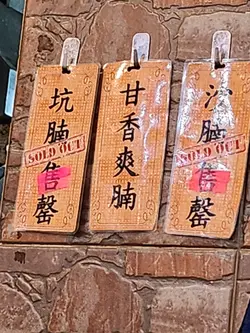 坑腩售罄
SOLD OUT
甘香爽腩
沙腩售罄
SOLD OUT